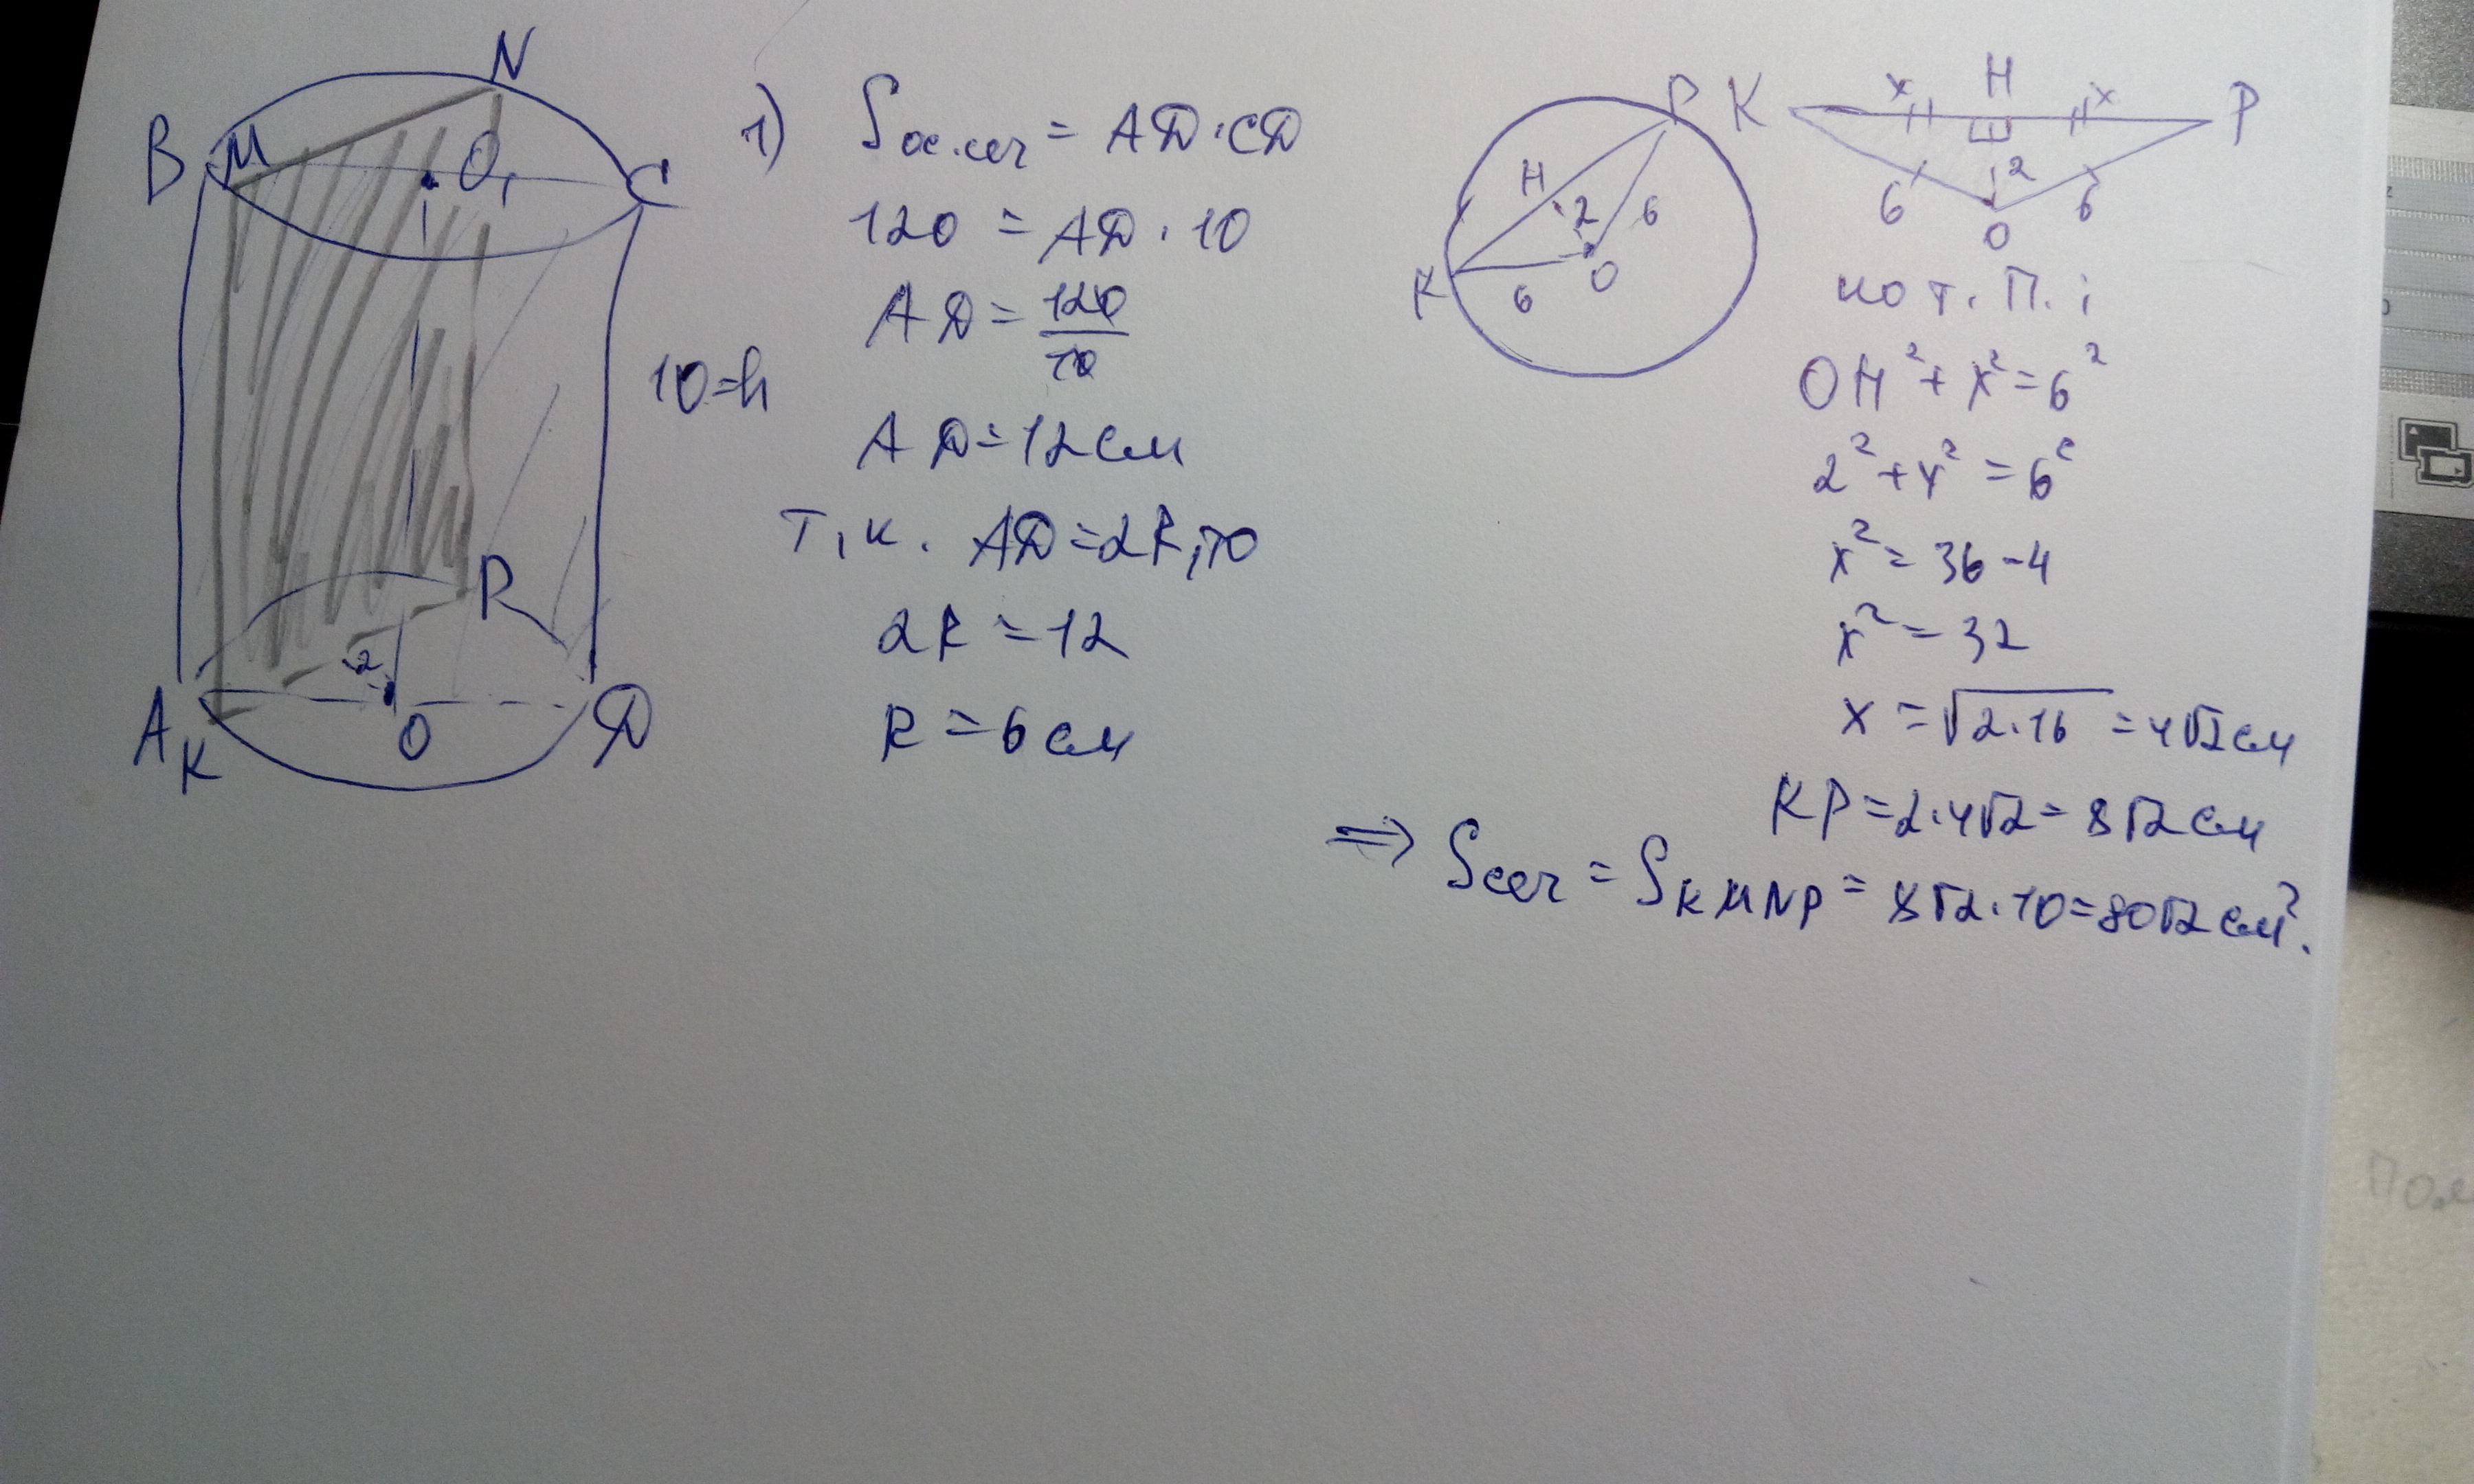 N
B M O₁ C
10=h
P
2
A K O D
1) Sос.сеч = AD·CD
120 = AD·10
AD = 120/10
AD = 12 см
т.к. AD = 2R, то
2R = 12
R = 6 см
P
H 2 6
K 6 O
K x H x P
6 2 6
O
по т. П.:
OH² + x² = 6²
2² + x² = 6²
x² = 36 - 4
x² = 32
x = √2·16 = 4√2 см
KP = 2·4√2 = 8√2 см
⇒ Sсеч = SKMNP = 8√2·10 = 80√2 см².